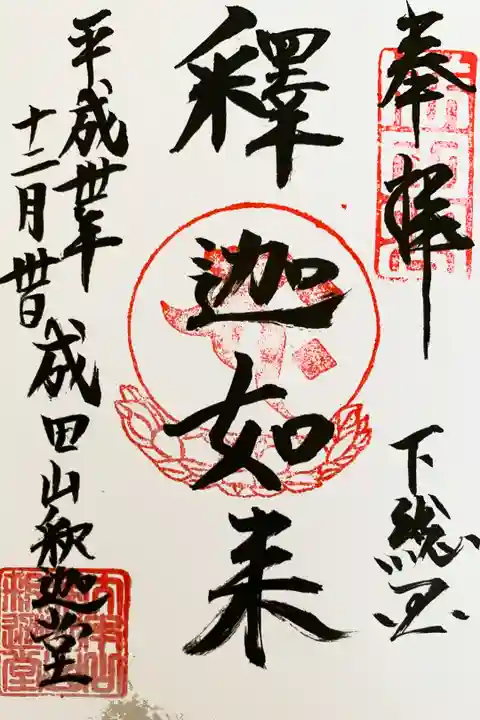 奉拝
下総国
釋迦如来
平成丗年
十二月丗日
成田山釈迦堂